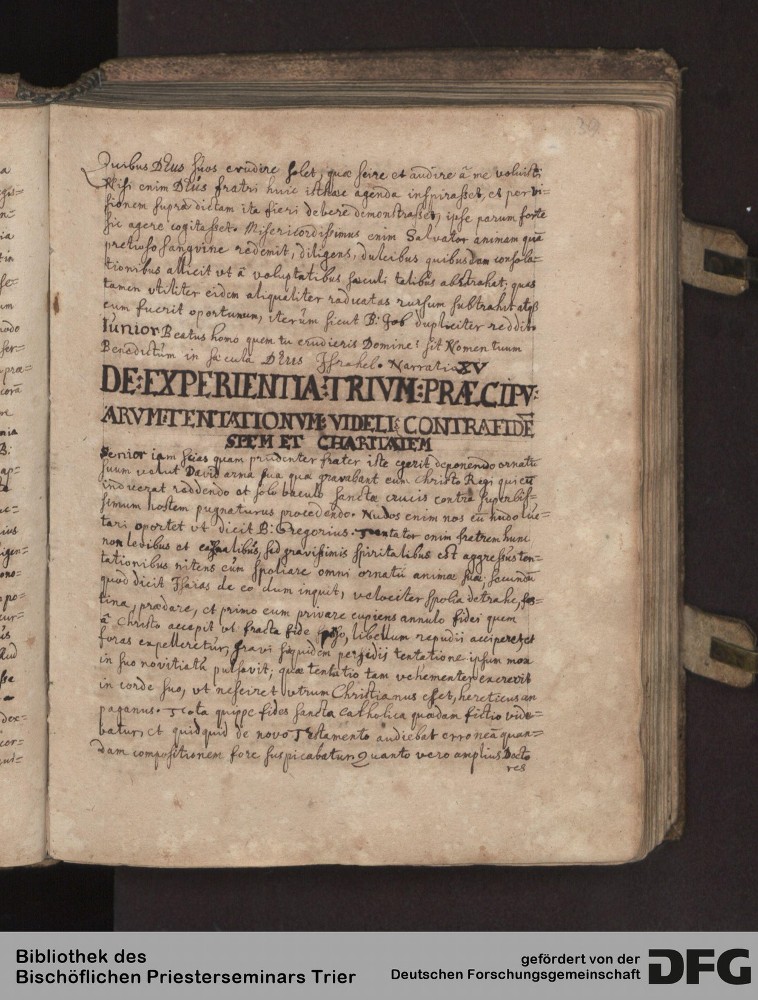 39
Quibus DEus suos erudire solet, quæ scire et audire â me voluisti
Nisi enim DEus fratri huic isthæc agenda inspirasset, et per vi=
sionem supra dictam ita fieri debere demonstrasset, ipse parum forte
sic agere cogitasset. Misericordissimus enim Salvator animam quã
pretioso sangvine redemit, diligens, dulcibus quibusdam consola=
tionibus allicit ut â voluptatibus sæculi talibus abstrahat; quas
tamen utiliter eidem aliqualiter radicatas rursum subtrahit atq
cum fuerit oportunum, iterûm sicut B: Job dupliciter reddit.
Iunior Beatus homo quem tu erudieris Domine: sit Nomen tuum
Benedictum in sæcula DEus Israhel. Narratio XV
DE:EXPERIENTIA:TRIVM:PRÆCIPV:
ARVM:TENTATIONVM:VIDELI:CONTRA FIDĒ
SPEM ET CHARITATEM
Senior iam scias quam prudenter frater iste egerit deponendo ornatũ
suum velut David arma sua quæ gravabant eum Christo Regi qui eũ
induerat reddendo et solo baculo sanctæ crucis contra superbis=
simum hostem pugnaturus procedendo. Nudos enim nos cũ nudo luc=
tari oportet ut dicit B: Gregorius. Tentator enim fratrem hunc
non levibus et carnalibus, sed gravissimis spiritalibus est aggressus ten=
tationibus nitens eum spoliare omni ornatu animæ suæ, secundũ
quod dicit Isaias de eo dum inquit, velociter spolia detrahe, fes=
tina, prædare, et primo eum privare cupiens annulo fidei quem
â Christo accepit ut fracta fide libellum repudii acciperet et
foras expelleretur, gravi siquidem perfidis tentatione ipsum mox
in suo novitiatu pulsavit; quæ tentatio tam vehementer excrevit
in corde suo, ut nesciret utrum Christianus esset, hereticus an
paganus. Tota quippe fides sancta catholica quædam fictio vide=
batur, et quidquid de novo Testamento audiebat erroneã quan=
dam compositionem fore suspicabatur. Quanto vero amplius Docto
res
Bibliothek des
Bischöflichen Priesterseminars Trier
gefördert von der
Deutschen Forschungsgemeinschaft
DFG